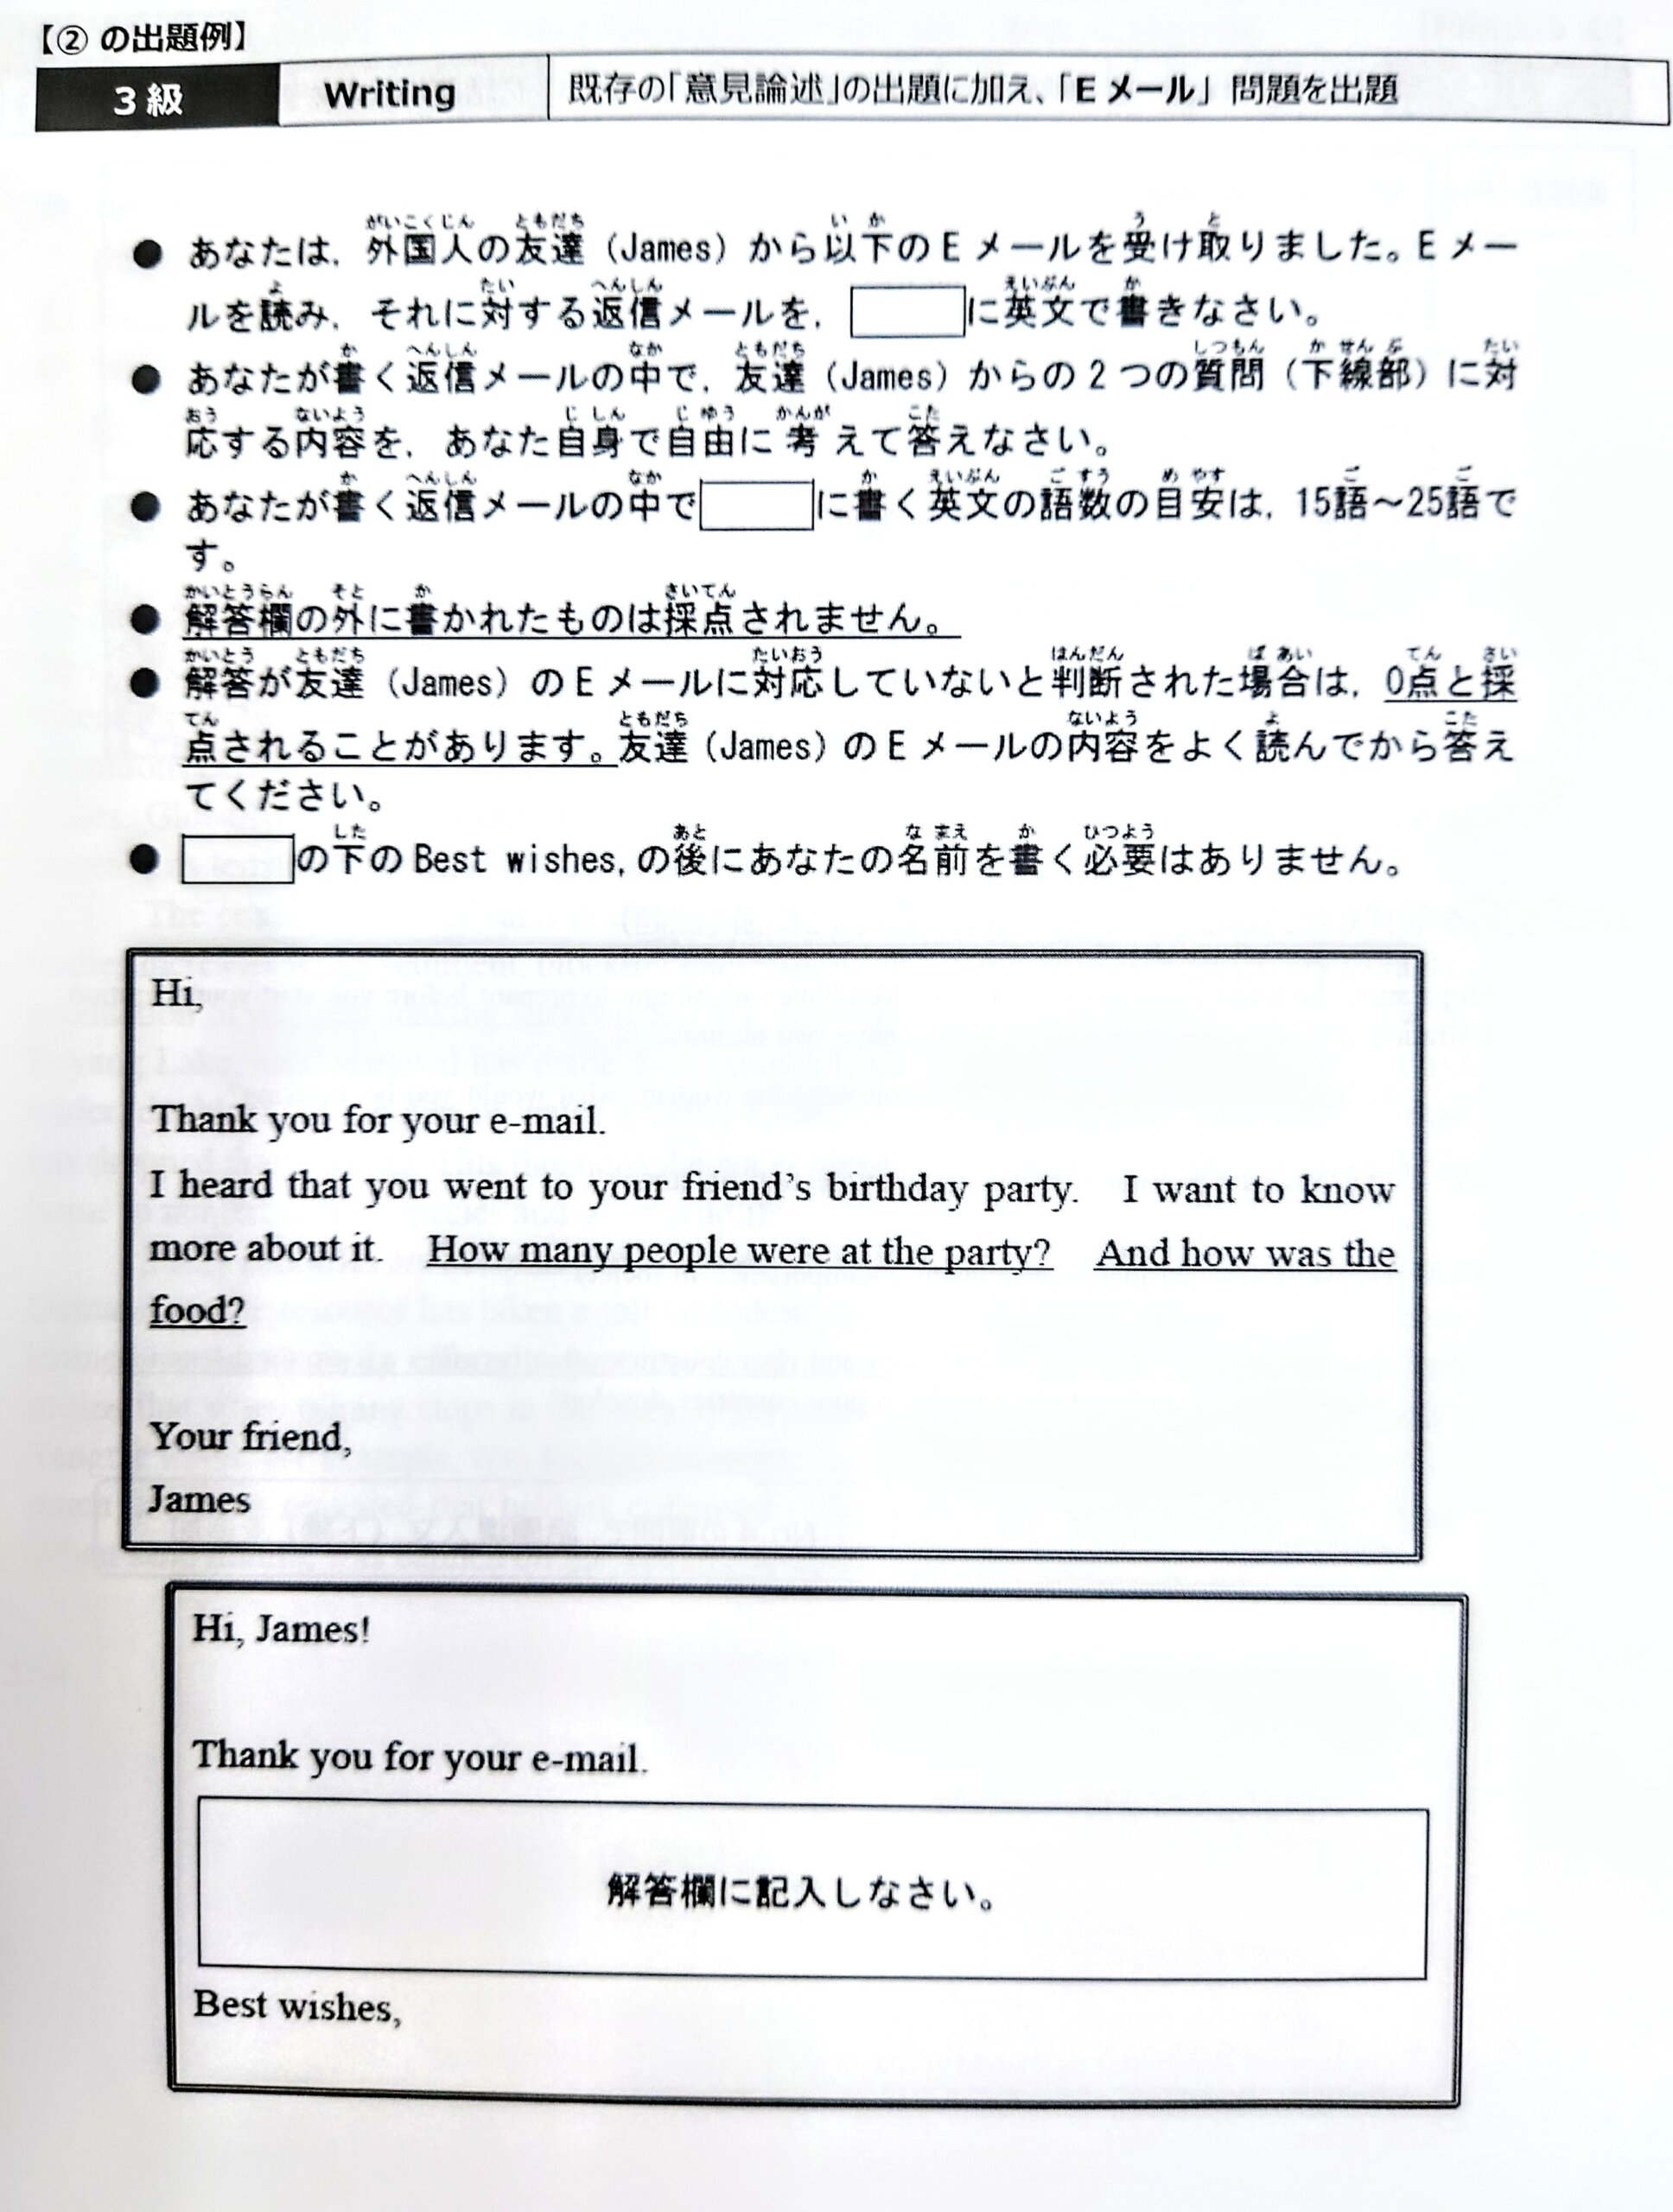 【② の出題例】
3級 Writing 既存の「意見論述」の出題に加え、「Eメール」問題を出題
● あなたは，外国人の友達（James）から以下のEメールを受け取りました。Eメー
ルを読み，それに対する返信メールを，　　　に英文で書きなさい。
● あなたが書く返信メールの中で，友達（James）からの2つの質問（下線部）に対
応する内容を，あなた自身で自由に考えて答えなさい。
● あなたが書く返信メールの中で　　　に書く英文の語数の目安は，15語～25語で
す。
● 解答欄の外に書かれたものは採点されません。
● 解答が友達（James）のEメールに対応していないと判断された場合は，0点と採
点されることがあります。友達（James）のEメールの内容をよく読んでから答え
てください。
● 　　　の下のBest wishes,の後にあなたの名前を書く必要はありません。
Hi,
Thank you for your e-mail.
I heard that you went to your friend's birthday party. I want to know
more about it. How many people were at the party? And how was the
food?
Your friend,
James
Hi, James!
Thank you for your e-mail.
解答欄に記入しなさい。
Best wishes,